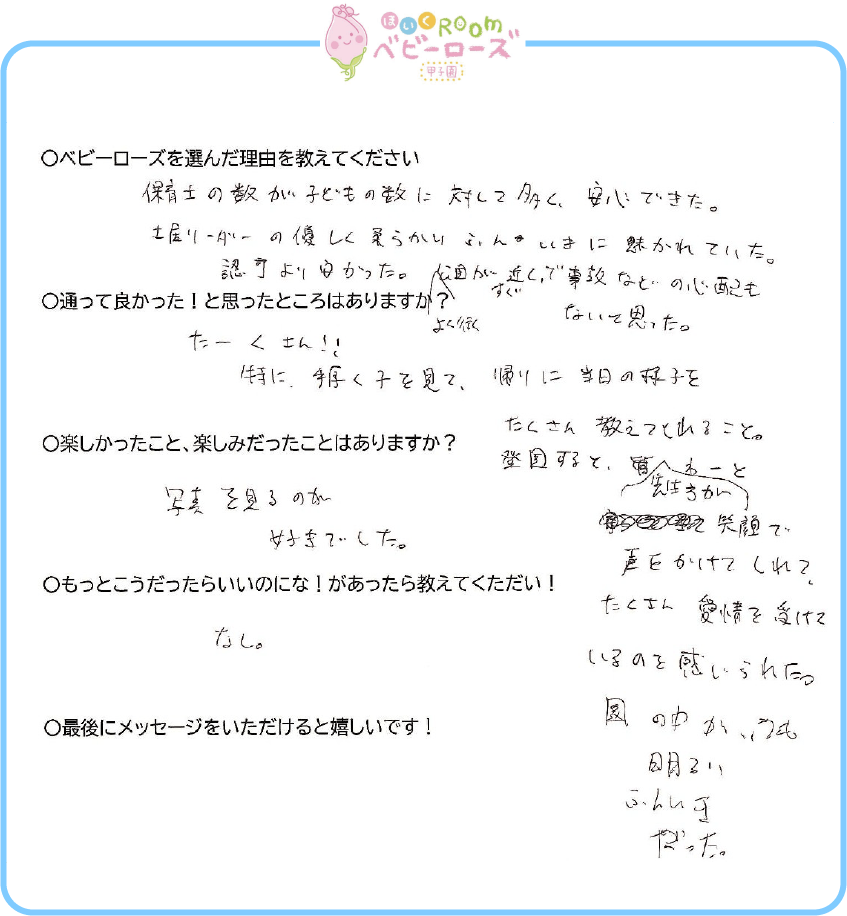 ほいくROOM
ベビーローズ
甲子園
○ベビーローズを選んだ理由を教えてください
保育士の数が子どもの数に対して多く、安心できた。
土屋リーダーの優しく柔らかいふんいきに魅かれていた。
認可より良かった。公園が近くて事故などの心配も
すぐ
よく行く
ないと思った。
○通って良かった!と思ったところはありますか?
たーくさん!!
特に、手厚く子を見て、帰りに当日の様子を
たくさん教えてくれること。
登園すると、皆わーっと
先生方が
笑顔で
声をかけてくれて、
たくさん愛情を受けて
いるのを感じられた。
園の中がいつも
明るい
ふんいき
だった。
○楽しかったこと、楽しみだったことはありますか?
写真を見るのが
好きでした。
○もっとこうだったらいいのにな!があったら教えてくただい!
なし。
○最後にメッセージをいただけると嬉しいです!